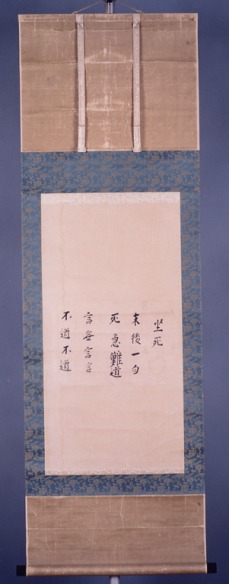 坐死
末後一句
死意難道
言無言言
不道不道